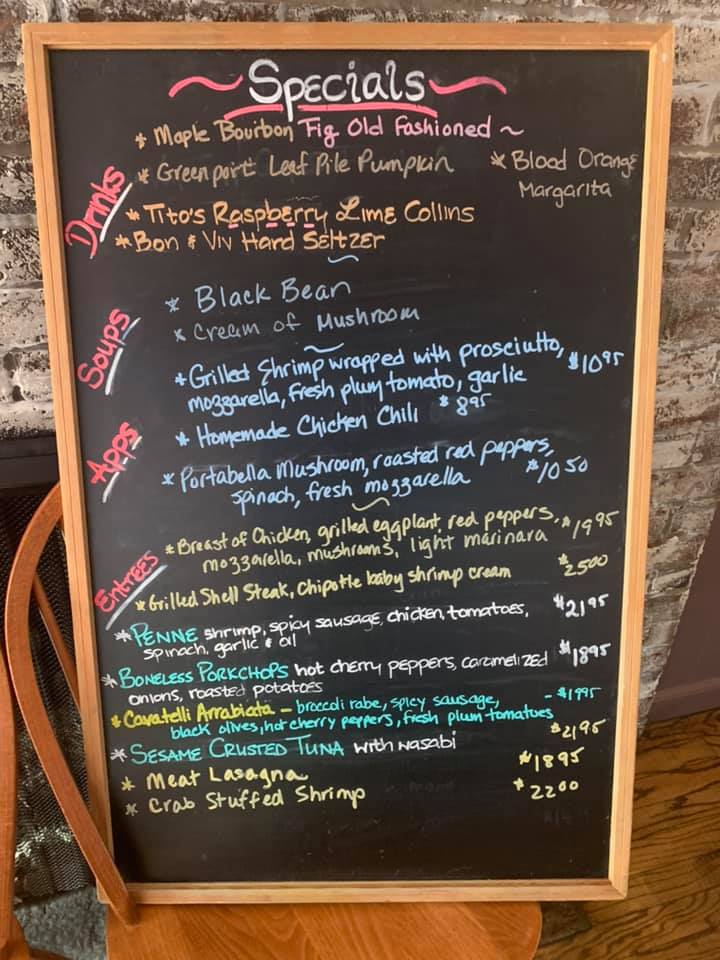 ~ Specials ~
Drinks
* Maple Bourbon Fig Old Fashioned ~
* Greenport Leaf Pile Pumpkin
* Blood Orange
Margarita
* Tito's Raspberry Lime Collins
* Bon & Viv Hard Seltzer
~
Soups
* Black Bean
* Cream of Mushroom
~
Apps
* Grilled Shrimp wrapped with prosciutto, $10 95
mozzarella, fresh plum tomato, garlic
* Homemade Chicken Chili $8 95
* Portabella Mushroom, roasted red peppers,
spinach, fresh mozzarella $10 50
~
Entrees
* Breast of Chicken, grilled eggplant, red peppers, $19 95
mozzarella, mushrooms, light marinara
* Grilled Shell Steak, Chipotle baby shrimp cream $25 00
* Penne shrimp, spicy sausage, chicken, tomatoes, $21 95
spinach, garlic & oil
* Boneless Porkchops hot cherry peppers, caramelized $18 95
onions, roasted potatoes
* Cavatelli Arrabiata - broccoli rabe, spicy sausage,
black olives, hot cherry peppers, fresh plum tomatoes
* Sesame Crusted Tuna with wasabi $21 95
* Meat Lasagna $18 95
* Crab Stuffed Shrimp $22 00